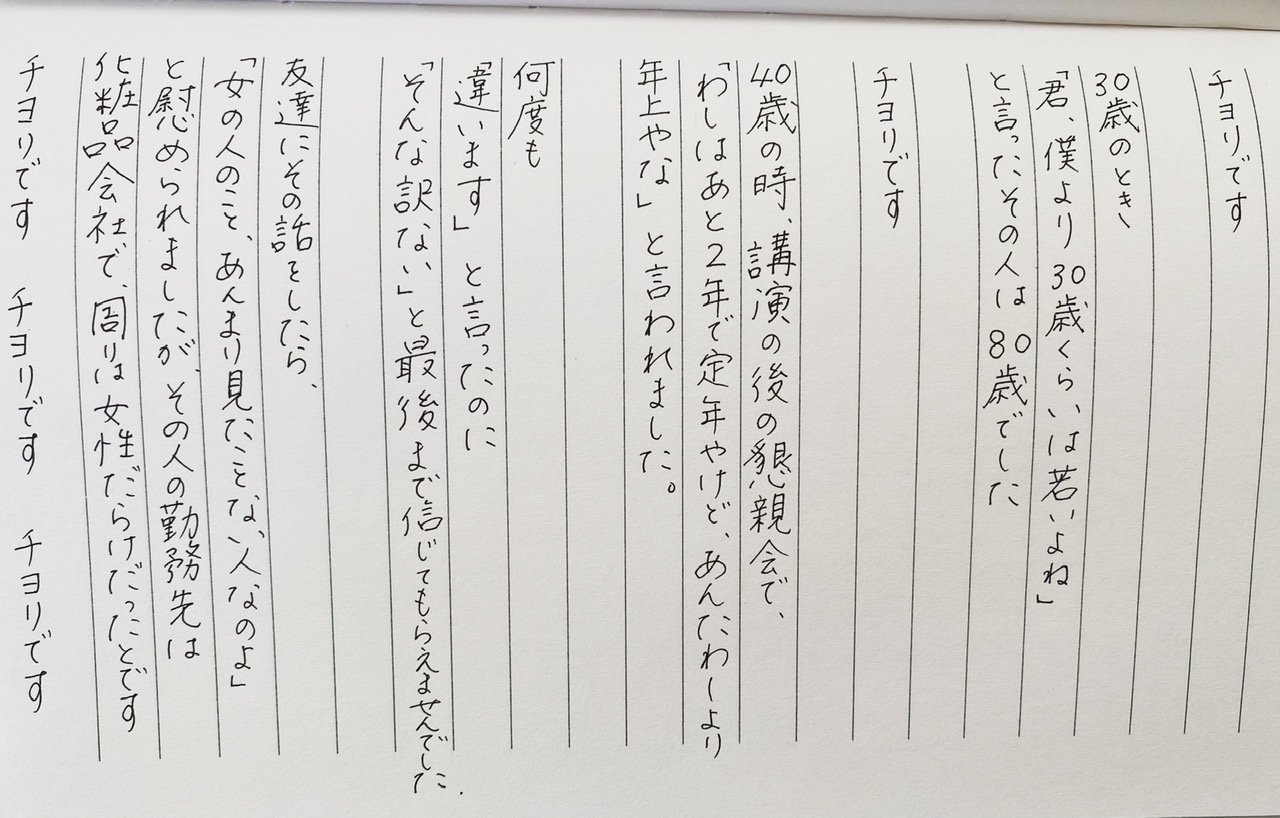 チヨリです
30歳のとき
「君、僕より30歳くらいは若いよね」
と言ったその人は80歳でした
チヨリです
40歳の時、講演の後の懇親会で、
「わしはあと2年で定年やけど、あんたわしより
年上やな」と言われました。
何度も
「違います」と言ったのに
「そんな訳ない」と最後まで信じてもらえませんでした.
友達にその話をしたら、
「女の人のこと、あんまり見たことない人なのよ」
と慰められましたが、その人の勤務先は
化粧品会社で、周りは女性だらけだったとです
チヨリです チヨリです チヨリです